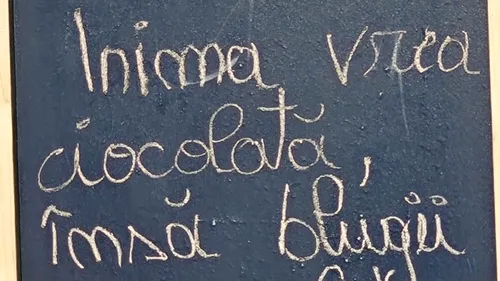 Inima vrea
ciocolată,
însă blugii